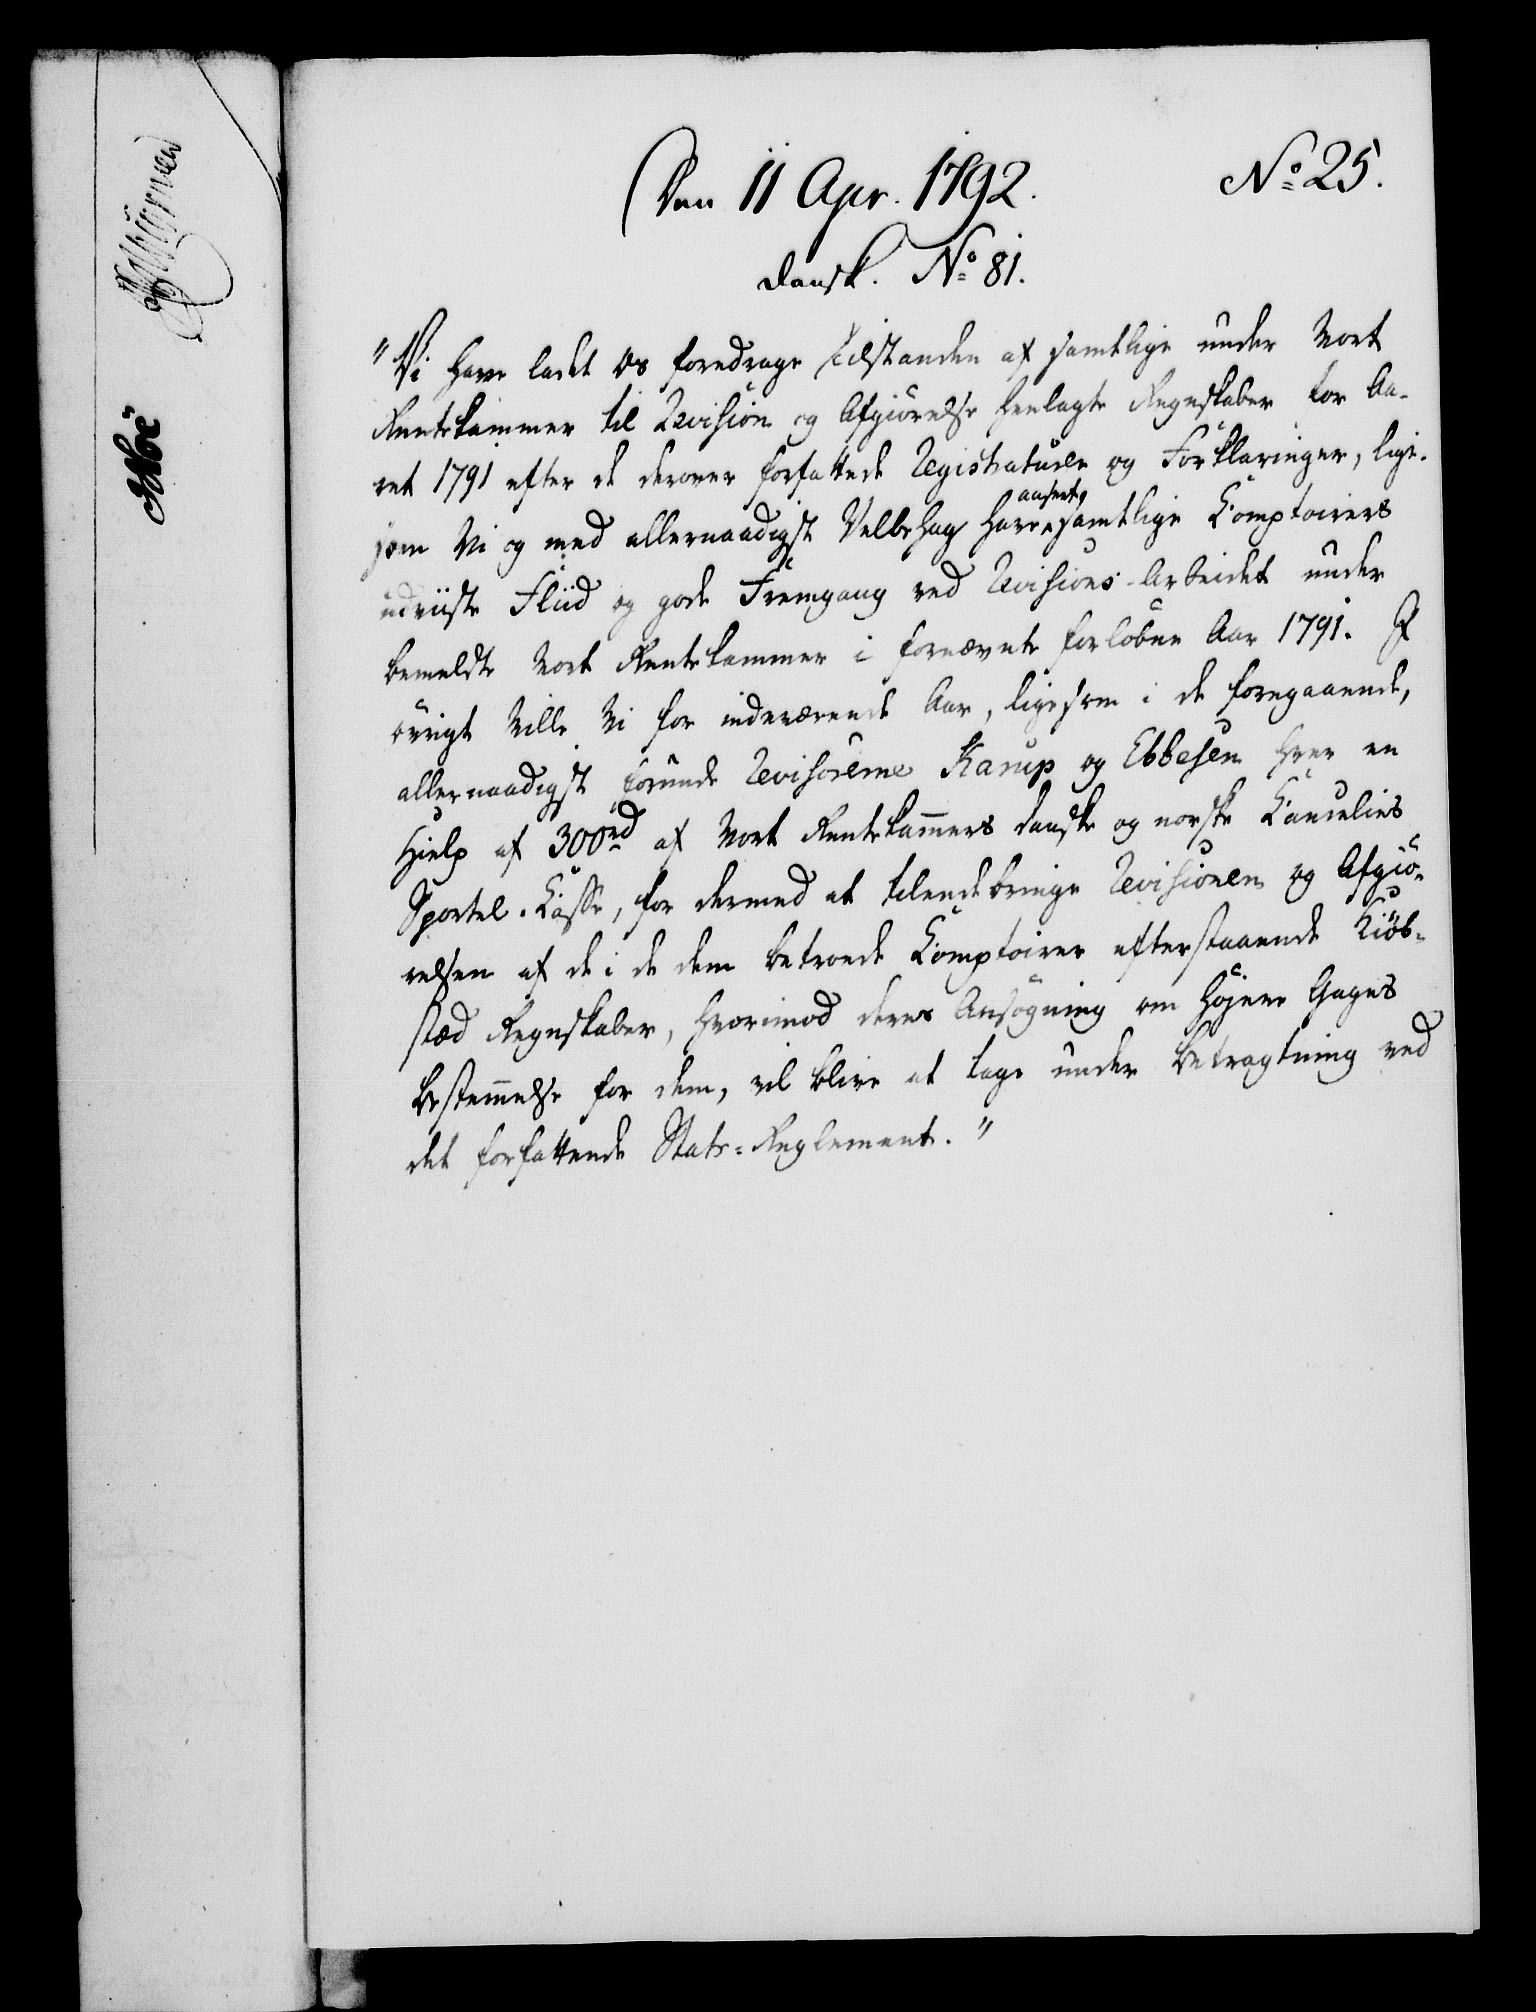 Den 11 Apr. 1792.
No 25.
dansk. No 81.
"Vi have ladet Os foredrage Tilstanden af samtlige under Vort
Rentekammer til Revision og Afgiörelse henlagte Regnskaber for Aa-
ret 1791 efter de derover forfattede Registraturer og Forklaringer, lige-
som Vi og med allernaadigst Velbehag have samtlige Comptoirers
anseet
udviiste Fliid og gode Fremgang ved Revisions-Arbeidet under
bemeldte Vort Rentekammer i fornævnte forløbne Aar 1791. I
övrigt Ville Vi for indeværende Aar, ligesom i de foregaaende,
allernaadigst forunde Revisorerne Karup og Ebbesen hver en
Hielp af 300 rd af Vort Rentekamers danske og norske Cancelies
Sportel-Casse, for dermed at tilendebringe Revisionen og Afgiö-
relsen af de i de dem betroede Comptoirer efterstaaende Kiöb-
stæd Regnskaber, hvorimod deres Ansögning om höjere Gages
Bestemelse for dem, vil blive at tage under Betragtning ved
det forfattende Stats-Reglement."